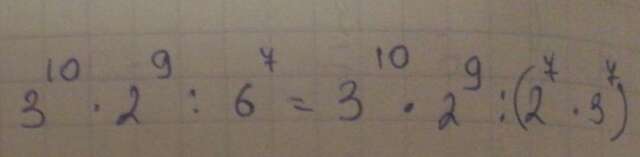 3¹⁰ · 2⁹ : 6⁷ = 3¹⁰ · 2⁹ : (2⁷ · 3⁷)